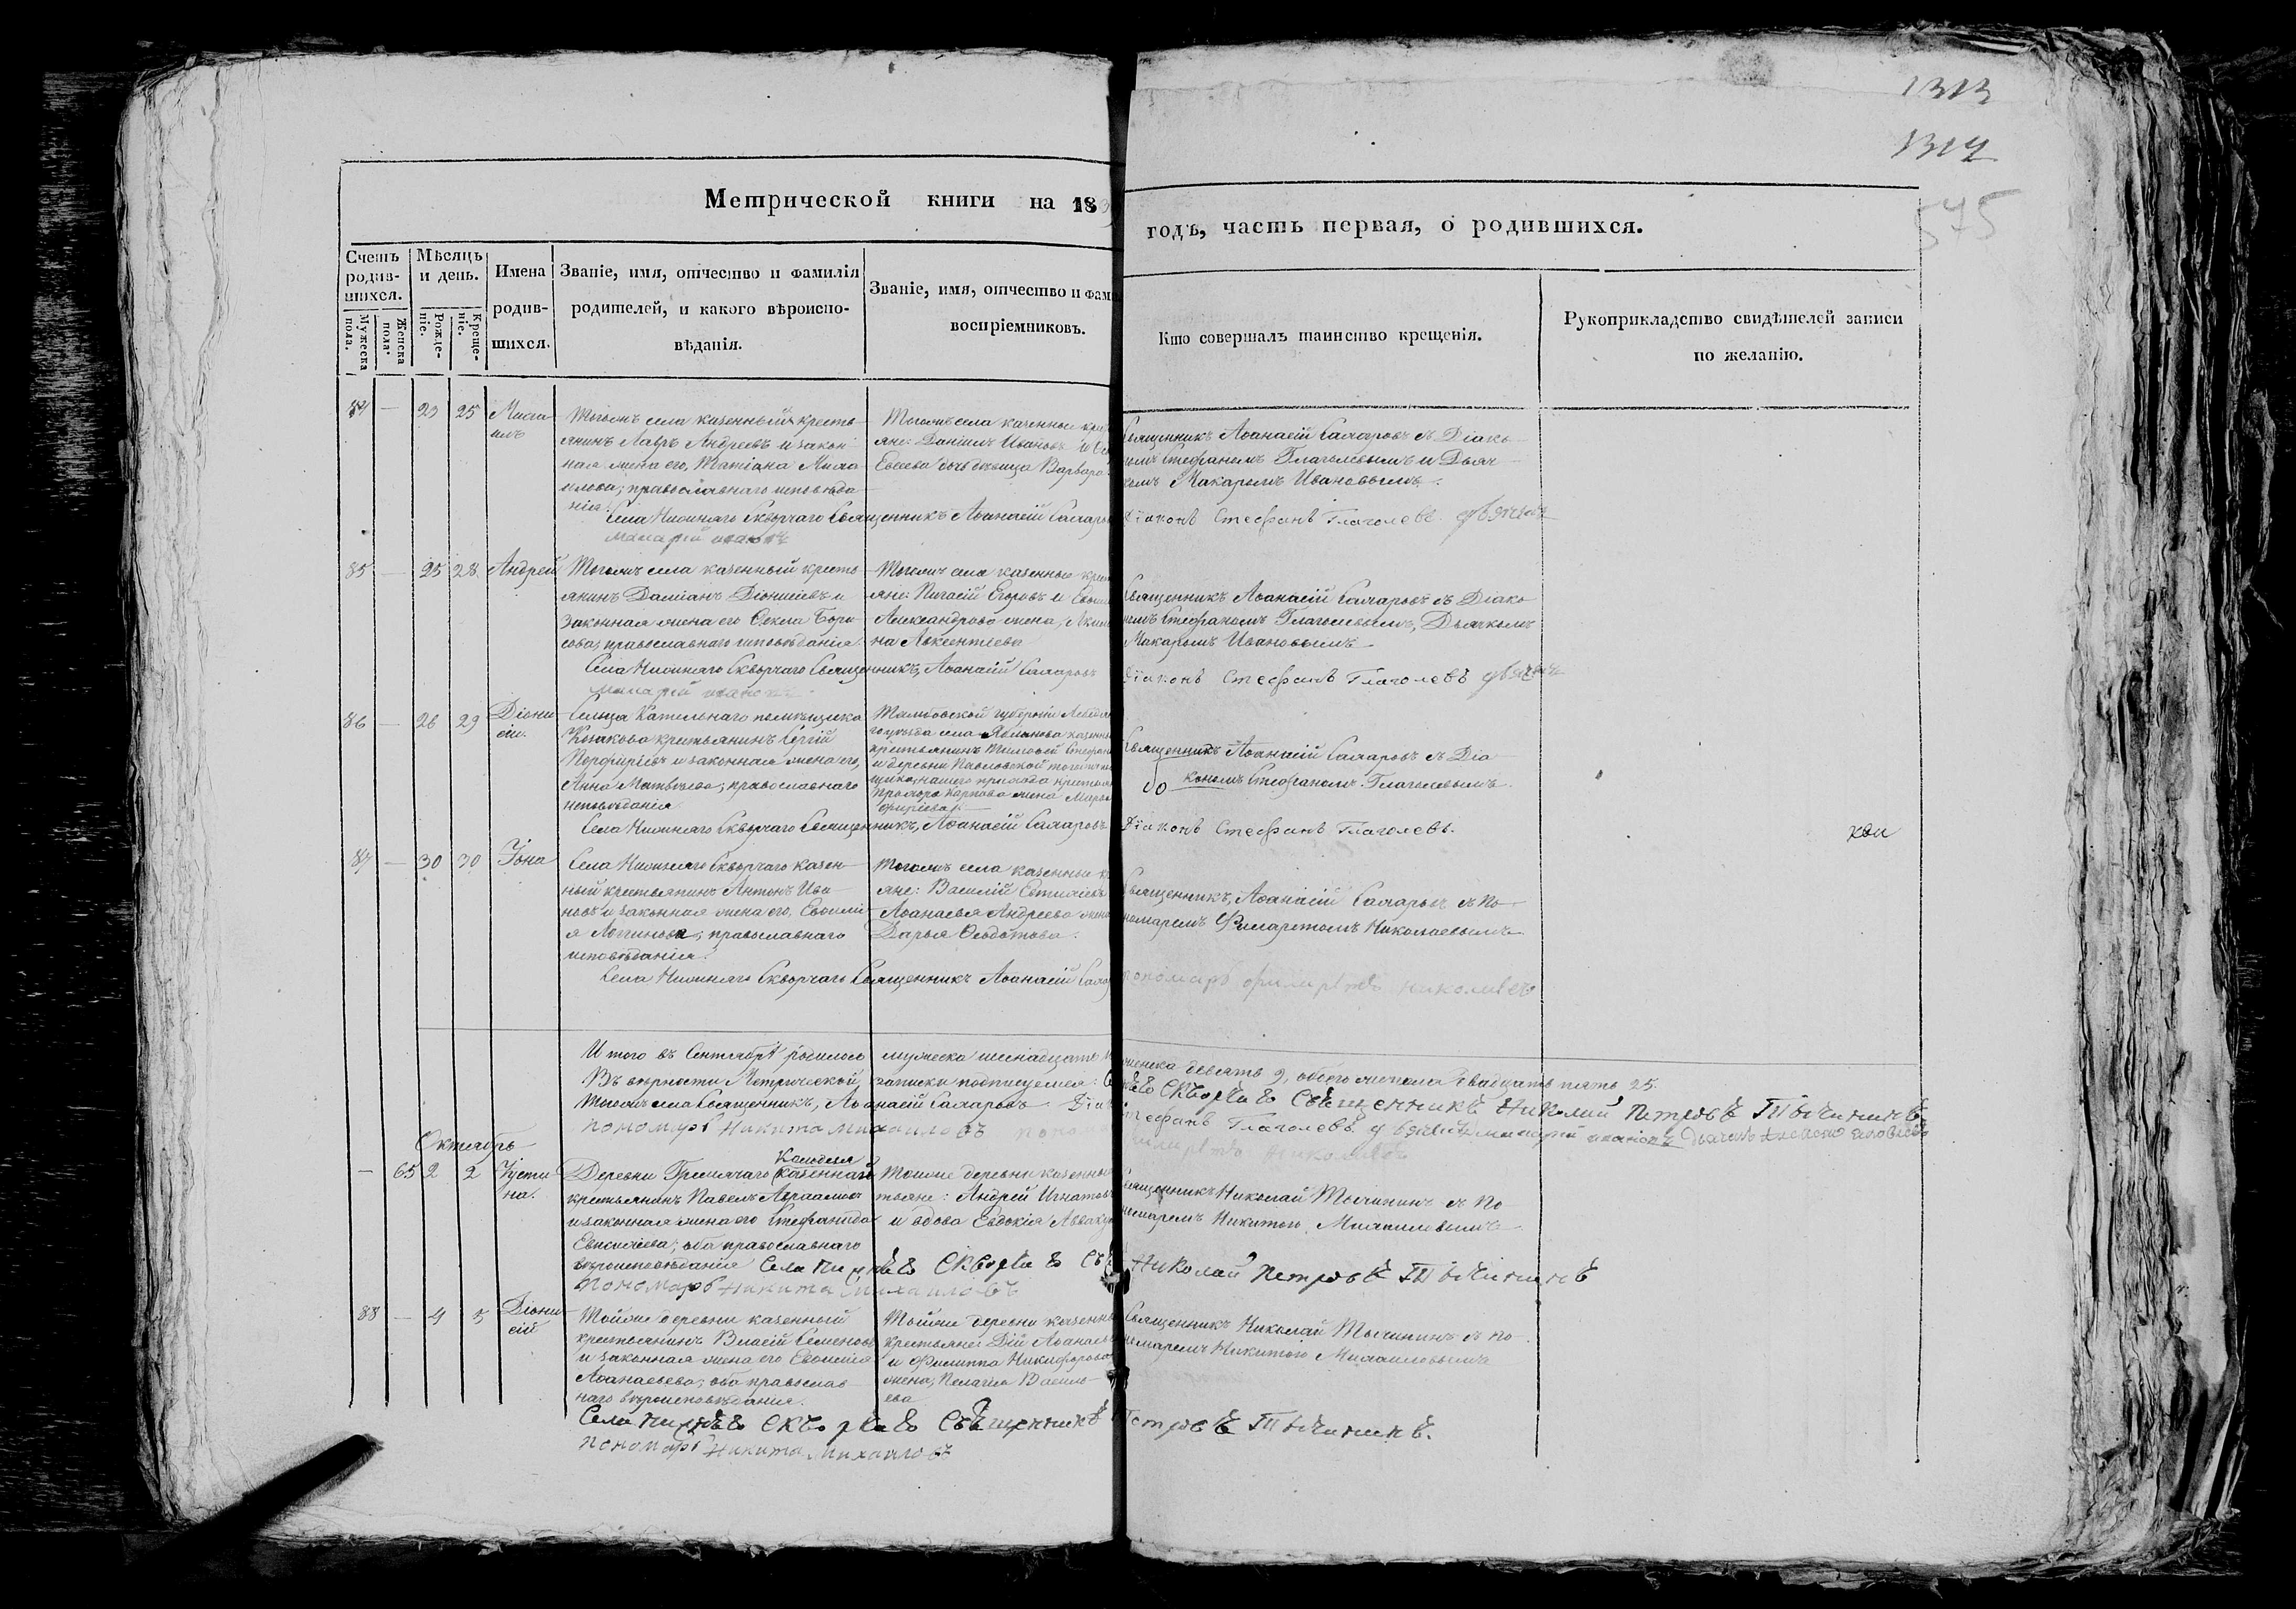 1313
1314
575
Метрической книги на 18
годъ, часть первая, о родившихся.
Счетъ родив-шихся.
Мужеска пола.
Женска пола.
Мѣсяцъ и день.
Рожде-ніе.
Креще-ніе.
Имена родив-шихся.
Званіе, имя, отчество и фамилія
родителей, и какого вѣроиспо-
вѣданія.
Званіе, имя, отчество и фами
воспріемниковъ.
Кто совершалъ таинство крещенія.
Рукоприкладство свидѣтелей записи
по желанію.
84 — 23 25
Тогожъ села казенный кресть
янинъ Лавръ Андреевъ и закон
ная жена его, Татіана Миха
илова; православнаго исповѣда
нія.
Тогожъ села казенные крес
яне: Даніилъ Ивановъ и
Евсеева дочь дѣвица Варвара
Священникъ Аѳанасій Самаровъ съ Діако
номъ Стефаномъ Глаголевымъ и Дьяч
комъ Макаромъ Ивановымъ.
Села Нижняго Скворчаго Священникъ Аѳанасій Самаров
Діаконъ Стефанъ Глаголевъ. дьячекъ
макарій ивановъ
85 — 25 28 Андрей
Тогожъ села казенный кресть
янинъ Даміанъ Діонисіевъ и
законная жена его Ѳекла Бори
сова; православнаго исповѣданія.
Тогожъ села казенные крес
яне: Пигасій Егоровъ и
Александрова жена, Аки
на Авксентьева
Священникъ Аѳанасій Самаровъ съ Діако
номъ Стефаномъ Глаголевымъ, Дьячкомъ
Макаромъ Ивановымъ
Села Нижняго Скворчаго Священникъ, Аѳанасій Самаровъ
Діаконъ Стефанъ Глаголевъ дьячекъ
макарій ивановъ
86 — 26 29 Діони
сій.
Сельца Кательнаго помѣщика
Козакова крестьянинъ Сергій
Порфиріевъ и законная жена его,
Анна Матвѣева; православнаго
исповѣданія.
Тамбовской губерніи Лебедя
го уѣзда села Яблонова казенны
крестьянинъ Тимоѳей Стефан
и деревни Павловской того же
щика, нашего прихода крестья
Прохора Карпова жена Марѳа
фиріева
Священникъ Аѳанасій Самаровъ съ Діа
кономъ Стефаномъ Глаголевымъ.
Села Нижняго Скворчаго Священникъ, Аѳанасій Самаровъ
Діаконъ Стефанъ Глаголевъ.
87 — 30 30 Іона
Села Нижняго Скворчаго казен
ный крестьянинъ Антонъ Ива
новъ и законная жена его, Евѳимі
я Логгинова; православнаго
исповѣданія.
Тогожъ села казенные к
яне: Василій Евтихіевъ
Аѳанасья Андреева жена
Дарья Ѳеодотова.
Священникъ, Аѳанасій Самаровъ съ По
номаремъ Филаретомъ Николаевымъ
Села Нижняго Скворчаго Священникъ Аѳанасій Сама
И того въ Сентябрѣ родилось мужеска шеснадцать
женска девять 9, обоего пола двадцать пять 25.
Въ вѣрности Метрической записки подписуемся:
Николай Петровъ Тычининъ
Тогожъ села Священникъ, Аѳанасій Самаровъ
Стефанъ Глаголевъ дьячекъ макарій ивановъ
пономарь Никита михаиловъ
Октябрь
— 65 2 2 Іусти
на.
Деревни Гремячаго Колодезя казеннаго
крестьянинъ Павелъ Авраамовъ
и законная жена его Стефанида
Евтихіева; оба православнаго
вѣроисповѣданія
Тойже деревни казенные
тьяне: Андрей Игнатовъ
и вдова Евдокія Авваку
Священникъ Николай Тычининъ съ По
номаремъ Никитою Михаиловымъ
Николай Петровъ Тычининъ
пономарь Никита Михаиловъ
88 — 4 5 Діони
сій
Тойже деревни казенный
крестьянинъ Власій Семеновъ
и законная жена его Евѳимія
Аѳанасьева; оба православ
наго вѣроисповѣданія.
Тойже деревни казенны
крестьяне: Дій Аѳанасье
и Филиппа Никифорова
жена, Пелагея Василь
ева
Священникъ Николай Тычининъ съ по
номаремъ Никитою Михаиловымъ
Петровъ Тычининъ.
пономарь Никита Михаиловъ